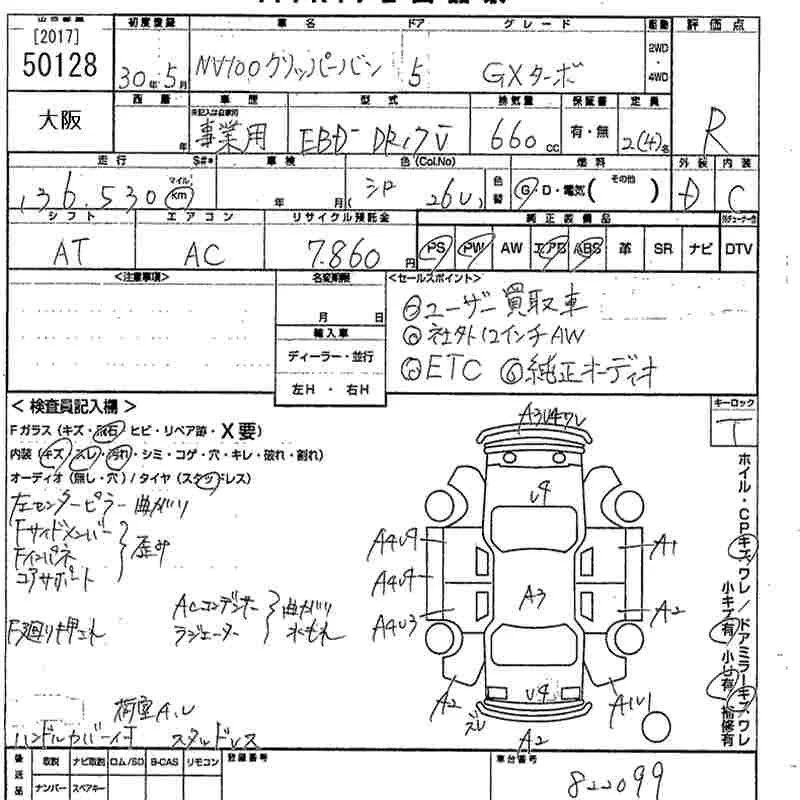 [2017]
50128
大阪
初度登録
30年5月
車名
NV100クリッパーバン
ドア
5
グレード
GXターボ
駆動
2WD
・
4WD
評価点
R
西暦
年
車歴
未記入は自家用
事業用
型式
EBD-DR17V
排気量
660 cc
保証書
有・無
定員
2(4)名
走行
S#*
136,530
マイル
km
車検
年 月(
色(Col.No)
シロ 26U)
色替
燃料
G・D・電気( その他 )
外装
D
内装
C
シフト
AT
エアコン
AC
リサイクル預託金
7.860円
純正装備品
PS PW AW エアB ABS 革 SR ナビ DTV
<注意事項>
名変期限
月 日
輸入車
ディーラー・並行
左H ・ 右H
<セールスポイント>
ユーザー買取車
社外12インチAW
ETC 純正オーディオ
<検査員記入欄>
Fガラス(キズ・飛石・ヒビ・リペア跡・X要)
内装(キズ・スレ・汚れ・シミ・コゲ・穴・キレ・破れ・割れ)
オーディオ(無し・穴)/タイヤ(スタッドレス)
左センターピラー曲がり
Fサイドメンバー
Fインパネ
コアサポート
歪み
F廻り押され
ACコンデンサー
ラジエーター
曲がり
水もれ
荷室A、U
スタッドレス
キーロック
T
ホイル・CPキズワレ/ドアミラーキズワレ
小キズ有 小凹有 補修有
U4
A4U9
A1
A4U4
A3
A4U3
A2
A2
U4
A1U1
ズレ
A2
後送品
取説 ナビ取説 ロム/SD B-CAS リモコン
ナンバー スペアキー
登録番号
車台番号
822099